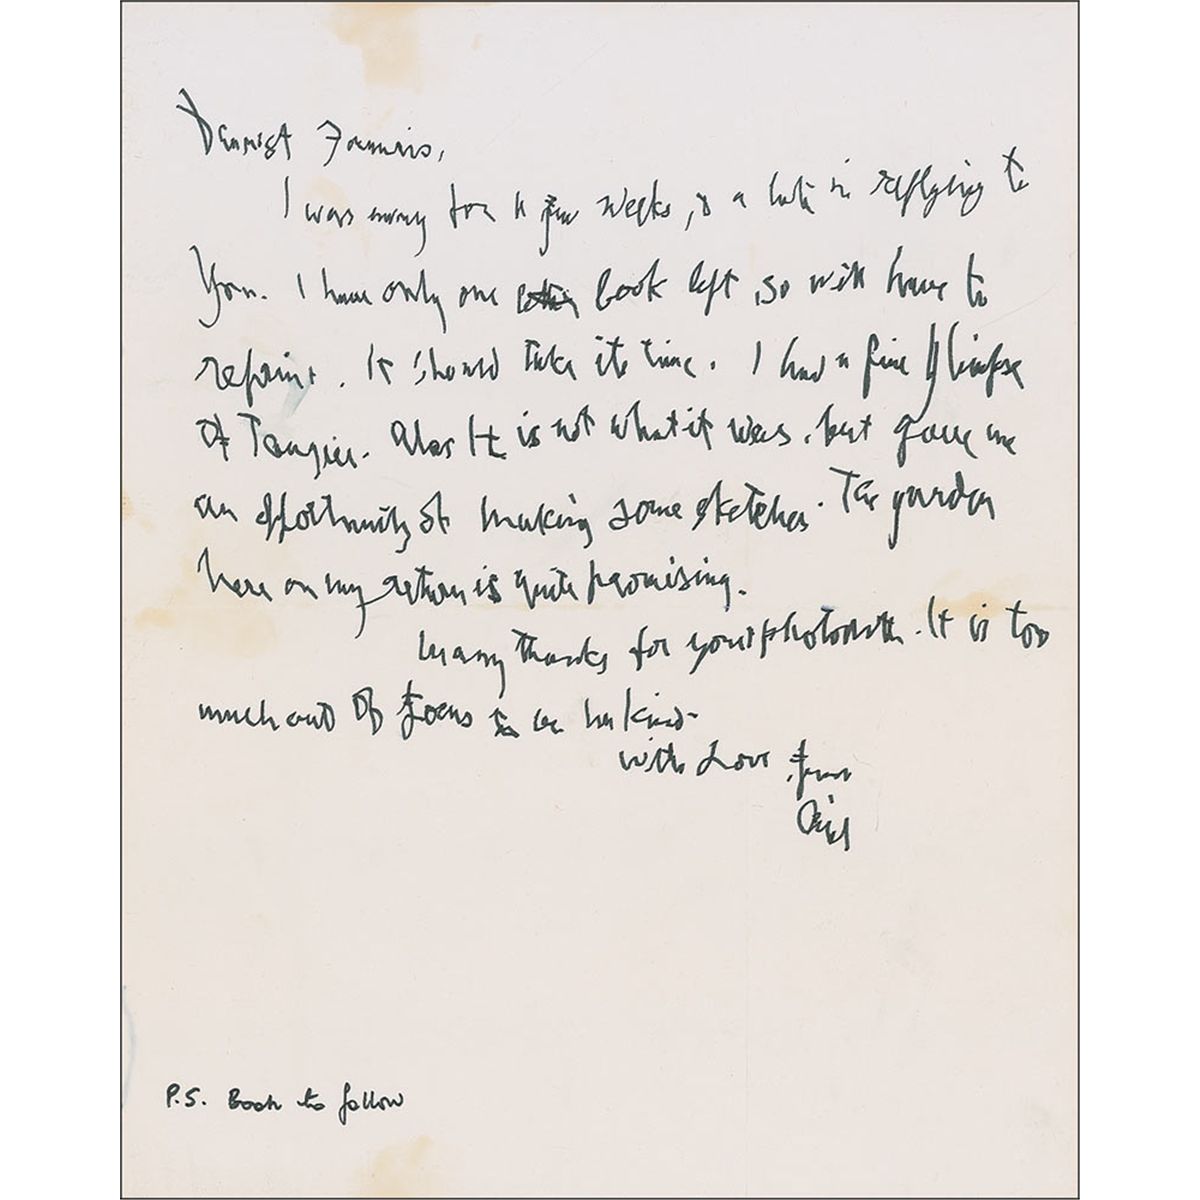 Dearest Francis,
I was away for a few weeks, & a late in replying to
You. I have only one book left, so will have to
reprint. It should take its time. I had a fine glimpse
of Tangier. Alas It is not what it was, but gave me
an opportunity of making some sketches. The garden
here on my return is quite promising.
Many thanks for your photo. It is too
much out of focus to be
with Love from
P.S. Book to follow